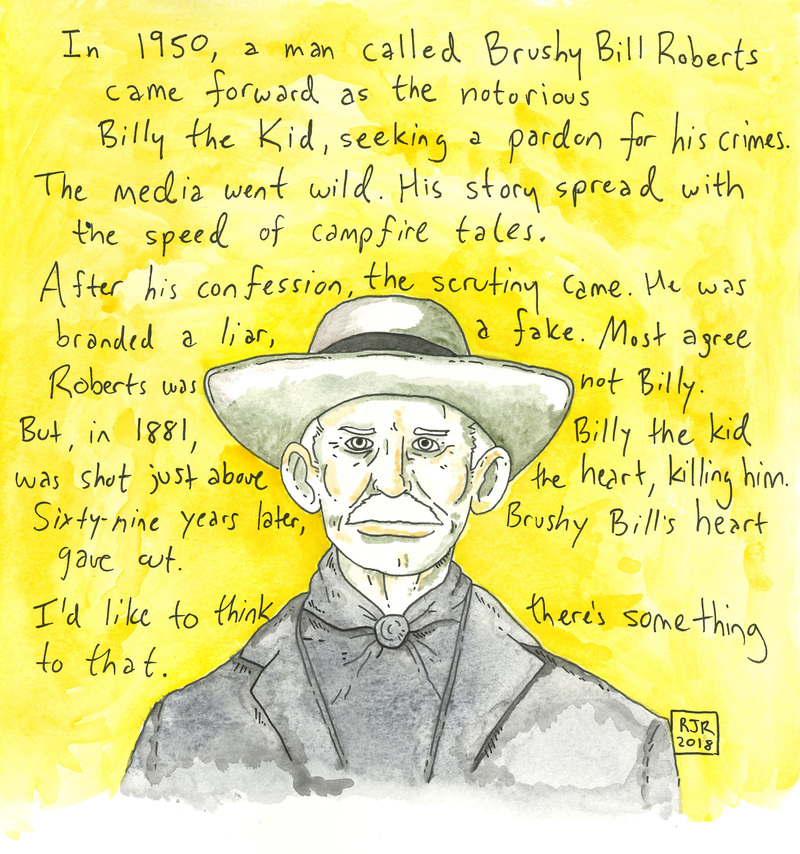 In 1950, a man called Brushy Bill Roberts
came forward as the notorious
Billy the Kid, seeking a pardon for his crimes.
The media went wild. His story spread with
the speed of campfire tales.
After his confession, the scrutiny came. He was
branded a liar, a fake. Most agree
Roberts was not Billy.
But, in 1881, Billy the kid
was shot just above the heart, killing him.
Sixty-nine years later, Brushy Bill's heart
gave out.
I'd like to think there's something
to that.
RJR
2018